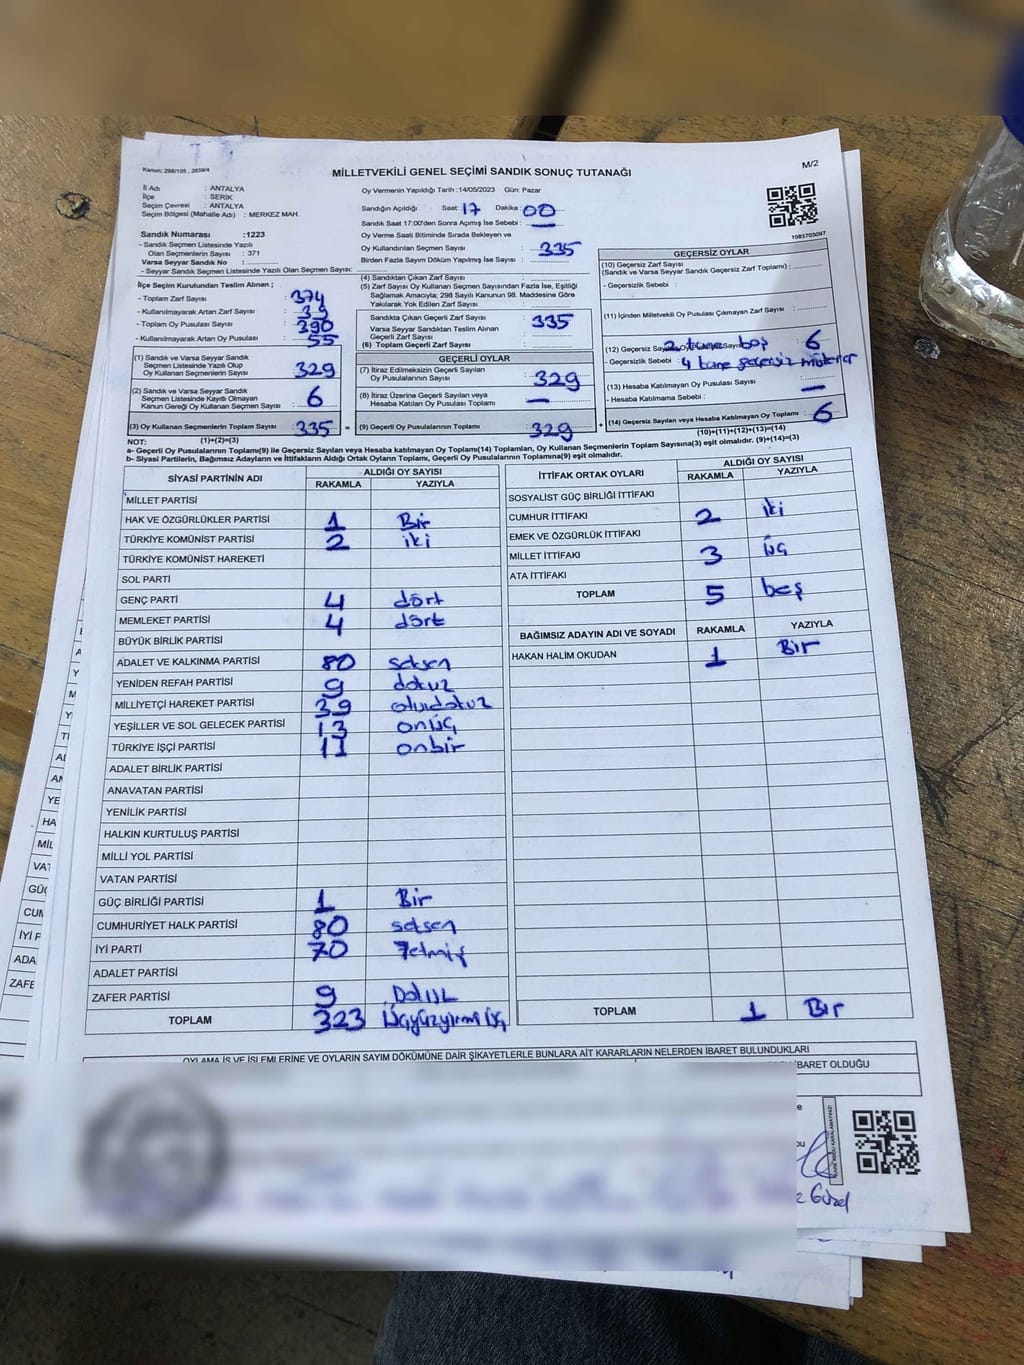 Kanun; 298/105 , 2839/4
MİLLETVEKİLİ GENEL SEÇİMİ SANDIK SONUÇ TUTANAĞI
M/2
İl Adı : ANTALYA
İlçe : SERİK
Seçim Çevresi : ANTALYA
Seçim Bölgesi (Mahalle Adı) : MERKEZ MAH.
Sandık Numarası :1223
- Sandık Seçmen Listesinde Yazılı
Olan Seçmenlerin Sayısı : 371
Varsa Seyyar Sandık No :
- Seyyar Sandık Seçmen Listesinde Yazılı Olan Seçmen Sayısı:
İlçe Seçim Kurulundan Teslim Alınan ;
- Toplam Zarf Sayısı : 374
- Kullanılmayarak Artan Zarf Sayısı : 39
- Toplam Oy Pusulası Sayısı : 390
- Kullanılmayarak Artan Oy Pusulası : 55
(1) Sandık ve Varsa Seyyar Sandık
Seçmen Listesinde Yazılı Olup
Oy Kullanan Seçmenlerin Sayısı : 329
(2) Sandık ve Varsa Seyyar Sandık
Seçmen Listesinde Kayıtlı Olmayan
Kanun Gereği Oy Kullanan Seçmen Sayısı : 6
(3) Oy Kullanan Seçmenlerin Toplam Sayısı : 335 =
Oy Vermenin Yapıldığı Tarih :14/05/2023 Gün: Pazar
Sandığın Açıldığı Saat: 17 Dakika: 00
Sandık Saat 17:00'den Sonra Açılmış İse Sebebi : —
Oy Verme Saati Bitiminde Sırada Bekleyen ve
Oy Kullandırılan Seçmen Sayısı : 335
Birden Fazla Sayım Döküm Yapılmış İse Sayısı :
(4) Sandıktan Çıkan Zarf Sayısı :
(5) Zarf Sayısı Oy Kullanan Seçmen Sayısından Fazla İse, Eşitliği
Sağlamak Amacıyla; 298 Sayılı Kanunun 98. Maddesine Göre
Yakılarak Yok Edilen Zarf Sayısı :
Sandıkta Çıkan Geçerli Zarf Sayısı : 335
Varsa Seyyar Sandıktan Teslim Alınan
Geçerli Zarf Sayısı :
(6) Toplam Geçerli Zarf Sayısı :
GEÇERLİ OYLAR
(7) İtiraz Edilmeksizin Geçerli Sayılan
Oy Pusulalarının Sayısı : 329
(8) İtiraz Üzerine Geçerli Sayılan veya
Hesaba Katılan Oy Pusulası Toplamı : —
(9) Geçerli Oy Pusulalarının Toplamı : 329 +
1083703097
GEÇERSİZ OYLAR
(10) Geçersiz Zarf Sayısı
(Sandık ve Varsa Seyyar Sandık Geçersiz Zarf Toplamı) :
- Geçersizlik Sebebi :
(11) İçinden Milletvekili Oy Pusulası Çıkmayan Zarf Sayısı :
(12) Geçersiz Sayılan Oy Pusulası Sayısı : 6
2 tane boş
- Geçersizlik Sebebi : 4 tane geçersiz
(13) Hesaba Katılmayan Oy Pusulası Sayısı : —
- Hesaba Katılmama Sebebi :
(14) Geçersiz Sayılan veya Hesaba Katılmayan Oy Toplamı : 6
NOT: (1)+(2)=(3) (10)+(11)+(12)+(13)=(14)
a- Geçerli Oy Pusulalarının Toplamı(9) ile Geçersiz Sayılan veya Hesaba katılmayan Oy Toplam(14) Toplamları, Oy Kullanan Seçmenlerin Toplam Sayısına(3) eşit olmalıdır. (9)+(14)=(3)
b- Siyasi Partilerin, Bağımsız Adayların ve İttifakların Aldığı Ortak Oyların Toplamı, Geçerli Oy Pusulalarının Toplamına(9) eşit olmalıdır.
SİYASİ PARTİNİN ADI ALDIĞI OY SAYISI
RAKAMLA YAZIYLA
MİLLET PARTİSİ
HAK VE ÖZGÜRLÜKLER PARTİSİ 1 Bir
TÜRKİYE KOMÜNİST PARTİSİ 2 iki
TÜRKİYE KOMÜNİST HAREKETİ
SOL PARTİ
GENÇ PARTİ 4 dört
MEMLEKET PARTİSİ 4 dört
BÜYÜK BİRLİK PARTİSİ
ADALET VE KALKINMA PARTİSİ 80 seksen
YENİDEN REFAH PARTİSİ 9 dokuz
MİLLİYETÇİ HAREKET PARTİSİ 39 otuzdokuz
YEŞİLLER VE SOL GELECEK PARTİSİ 13 onüç
TÜRKİYE İŞÇİ PARTİSİ 11 onbir
ADALET BİRLİK PARTİSİ
ANAVATAN PARTİSİ
YENİLİK PARTİSİ
HALKIN KURTULUŞ PARTİSİ
MİLLİ YOL PARTİSİ
VATAN PARTİSİ
GÜÇ BİRLİĞİ PARTİSİ 1 Bir
CUMHURİYET HALK PARTİSİ 80 seksen
İYİ PARTİ 70 Yetmiş
ADALET PARTİSİ
ZAFER PARTİSİ 9 Dokuz
TOPLAM 323 Üçyüzyirmi üç
İTTİFAK ORTAK OYLARI ALDIĞI OY SAYISI
RAKAMLA YAZIYLA
SOSYALİST GÜÇ BİRLİĞİ İTTİFAKI
CUMHUR İTTİFAKI 2 iki
EMEK VE ÖZGÜRLÜK İTTİFAKI
MİLLET İTTİFAKI 3 üç
ATA İTTİFAKI
TOPLAM 5 beş
BAĞIMSIZ ADAYIN ADI VE SOYADI RAKAMLA YAZIYLA
HAKAN HALİM OKUDAN 1 Bir
TOPLAM 1 Bir
OYLAMA İŞ VE İŞLEMLERİNE VE OYLARIN SAYIM DÖKÜMÜNE DAİR ŞİKAYETLERLE BUNLARA AİT KARARLARIN NELERDEN İBARET BULUNDUKLARI
İBARET OLDUĞU